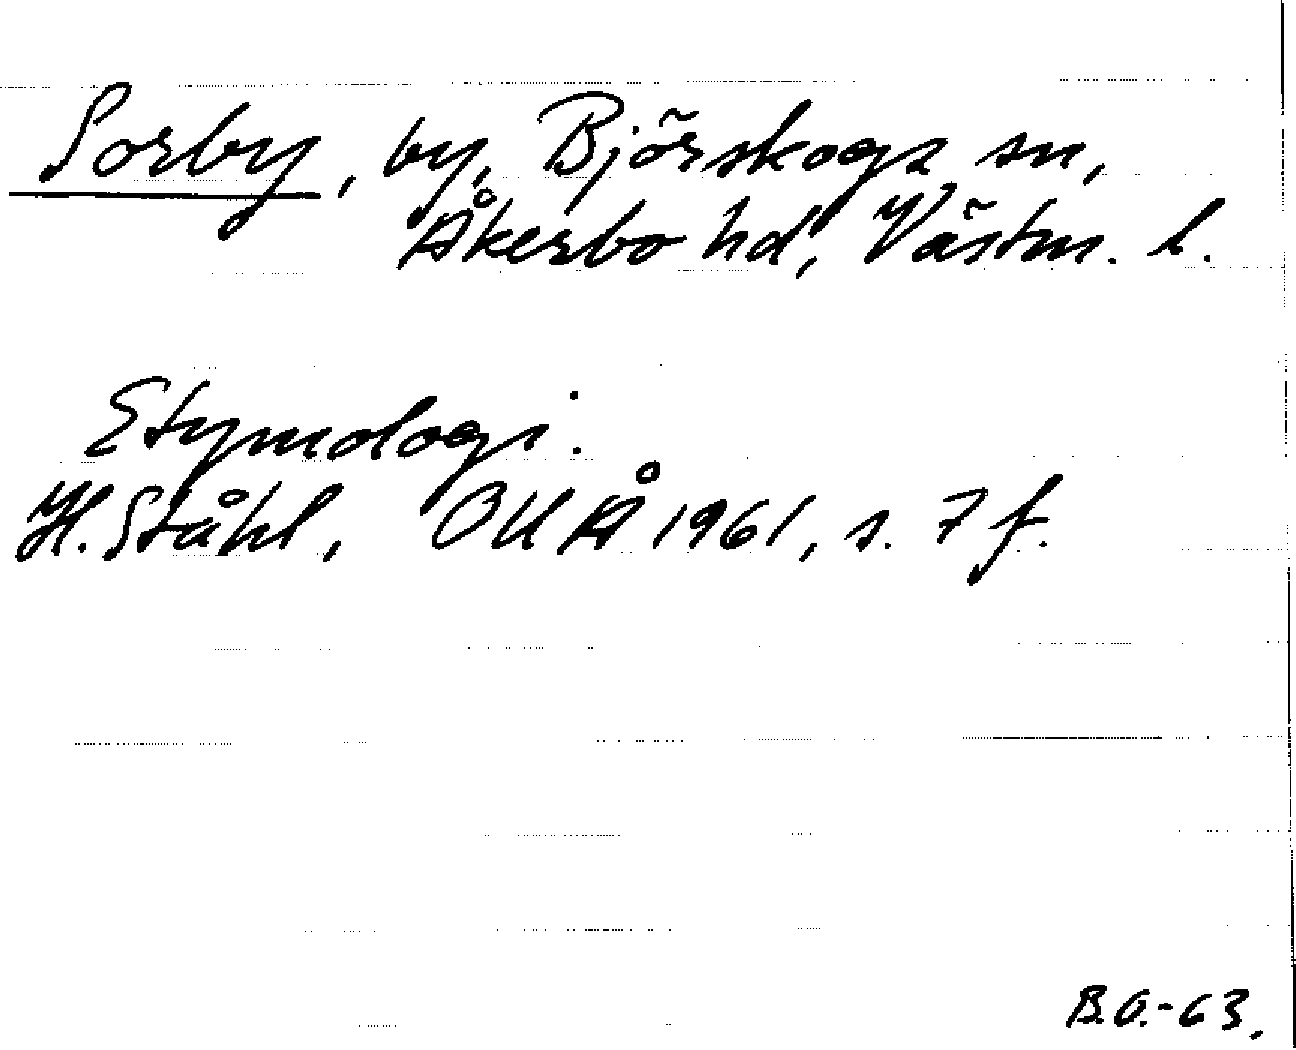 Sorby, by, Björskogs sn,
Åkerbo hd, Västm. l.
Etymologi.
H. Ståhl, OUÅ 1961, s. 7 f.
B.O.-63.